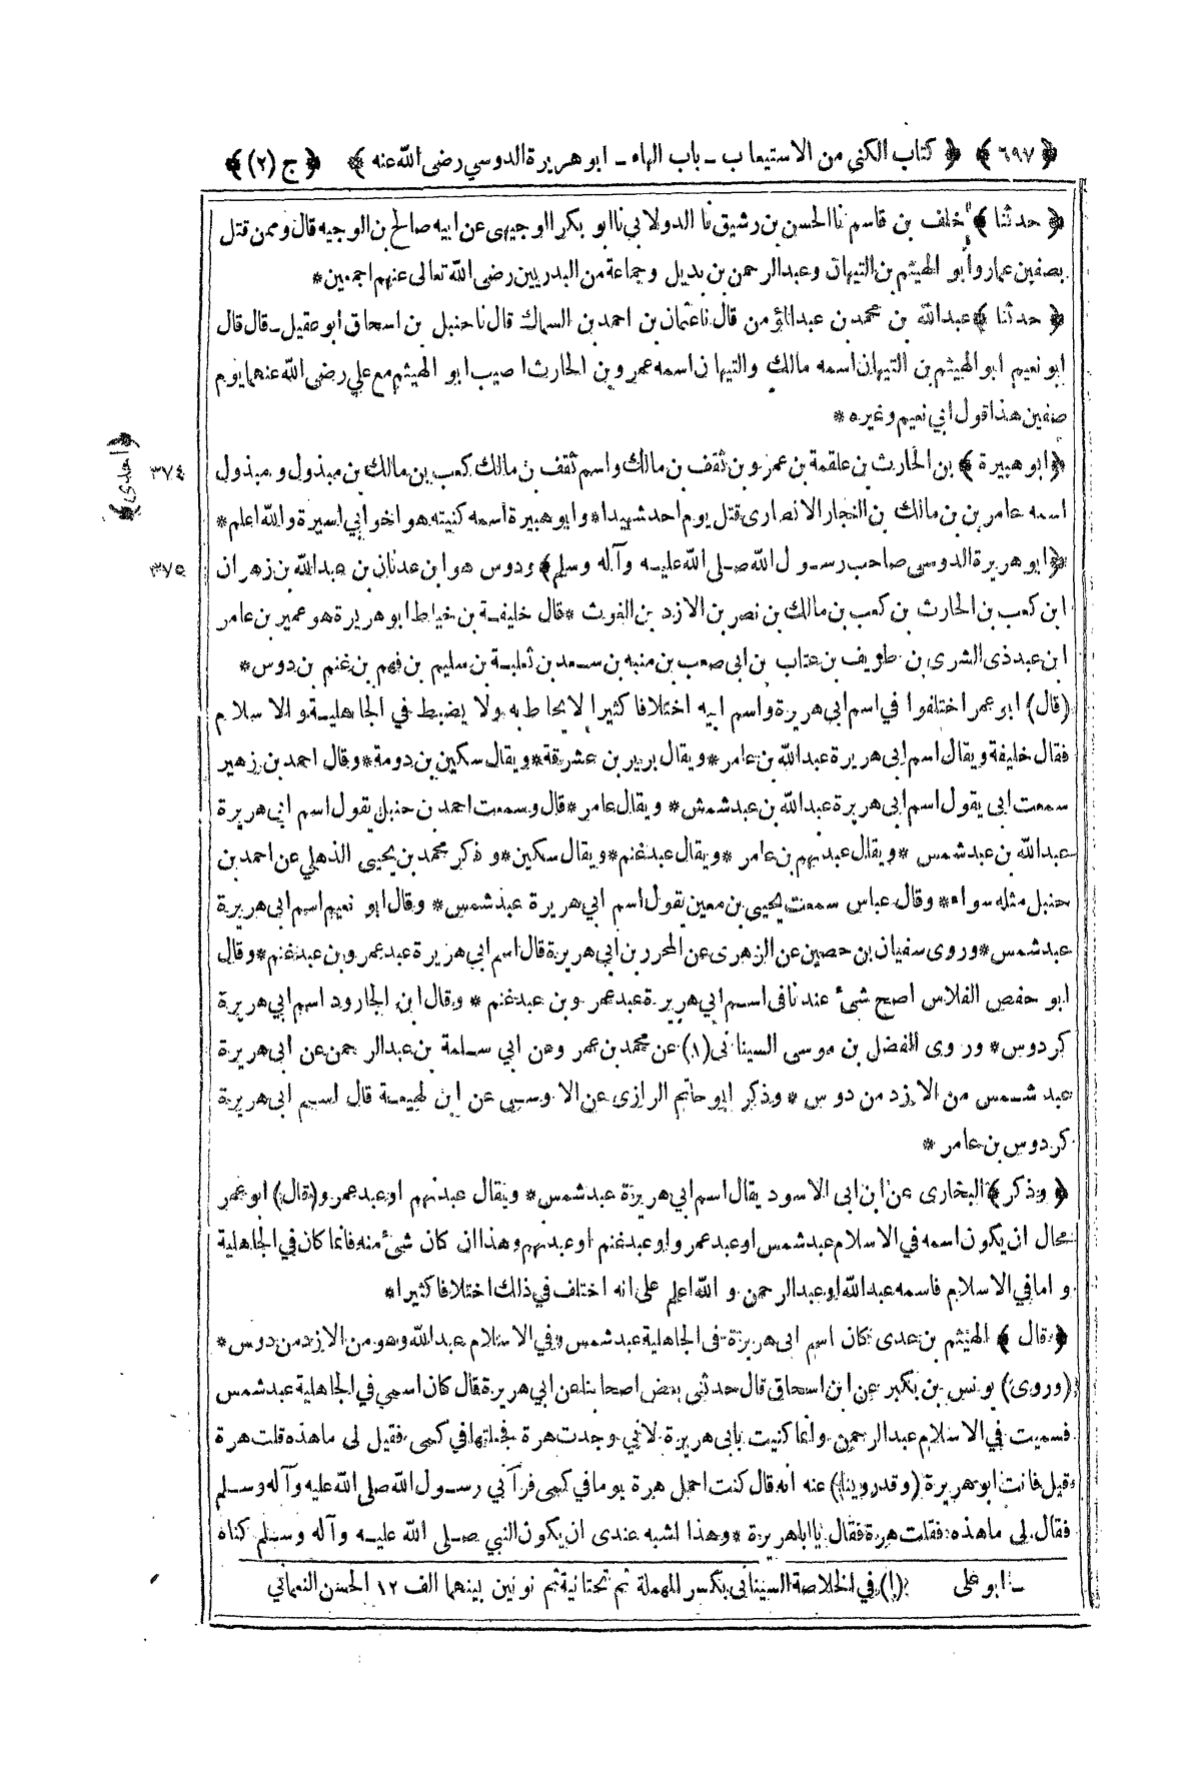 ﴿ ٦٩٧ ﴾ ﴿ كتاب الكنى من الاستيعاب ـ باب الهاء ـ ابو هريرة الدوسي رضى الله عنه ﴾ ﴿ ج (٢) ﴾
﴿ حدثنا ﴾ خلف بن قاسم نا الحسن بن رشيق نا الدولابي نا ابو بكر الوجيهى عن ابيه صالح بن الوجيه قال وممن قتل
بصفين عمار وأبو الهيثم بن التيهان وعبدالرحمن بن بديل وجماعة من البدريين رضى الله تعالى عنهم اجمعين *
﴿ حدثنا ﴾ عبدالله بن محمد بن عبدالمؤمن قال نا عثمان بن احمد بن السماك قال نا حنبل بن اسحاق ابو عقيل ـ قال قال
ابو نعيم ابو الهيثم بن التيهان اسمه مالك والتيهان اسمه عمرو بن الحارث اصيب ابو الهيثم مع علي رضى الله عنهما يوم
صفين هذا قول ابي نعيم وغيره *
﴿ ابو هبيرة ﴾ بن الحارث بن علقمة بن عمرو بن ثقف بن مالك واسم ثقف بن مالك كعب بن مالك بن مبذول ومبذول
٣٧٤
﴿ احدى ﴾
اسمه عامر بن بن مالك بن النجار الانصارى قتل يوم احد شهيدا * وابو هبيرة اسمه كنيته هو اخو ابي اسيرة والله اعلم *
﴿ ابو هريرة الدوسى صاحب رسول الله صلى الله عليه وآله وسلم ﴾ ودوس هو ابن عدنان بن عبدالله بن زهران
٣٧٥
ابن كعب بن الحارث بن كعب بن مالك بن نصر بن الازد بن الغوث * قال خليفة بن خياط ابو هريرة هو عمير بن عامر
ابن عبد ذى الشرى بن طويف بن عتاب بن ابى صعب بن منبه بن سعد بن ثعلبة بن سليم بن فهم بن غنم بن دوس *
(قال) ابو عمر اختلفوا في اسم ابى هريرة واسم ابيه اختلافا كثيرا لا يحاط به ولا يضبط في الجاهلية والاسلام
فقال خليفة ويقال اسم ابى هريرة عبدالله بن عامر * ويقال برير بن عشرقة * ويقال سكين بن دومة * وقال احمد بن زهير
سمعت ابى يقول اسم ابى هريرة عبدالله بن عبدشمش * ويقال عامر * قال وسمعت احمد بن حنبل يقول اسم ابى هريرة
عبدالله بن عبدشمس * ويقال عبدنهم بن عامر * ويقال عبدغنم * ويقال سكين * وذكر محمد بن يحيى الذهلي عن احمد بن
حنبل مثله سواء * وقال عباس سمعت يحيى بن معين يقول اسم ابي هريرة عبدشمس * وقال ابو نعيم اسم ابى هريرة
عبدشمس * وروى سفيان بن حصين عن الزهرى عن المحرر بن ابي هريرة قال اسم ابي هريرة عبدعمرو بن عبدغنم * وقال
ابو حفص الفلاس اصح شئ عندنا فى اسم ابي هريرة عبدعمرو بن عبدغنم * وقال ابن الجارود اسم ابي هريرة
كردوس * وروى الفضل بن موسى السينانى (١) عن محمد بن عمر وعن ابي سلمة بن عبدالرحمن عن ابى هريرة
عبد شمس من الازد من دوس * وذكر ابو حاتم الرازى عن الاوسي عن ابن لهيعة قال اسم ابى هريرة
كردوس بن عامر *
﴿ وذكر ﴾ البخارى عن ابن ابى الاسود يقال اسم ابي هريرة عبدشمس * ويقال عبدنهم او عبدعمرو (قال) ابو عمر
محال ان يكون اسمه في الاسلام عبدشمس او عبدعمرو او عبدغنم او عبدنهم وهذا ان كان شئ منه فانما كان في الجاهلية
و اما في الاسلام فاسمه عبدالله او عبدالرحمن و الله اعلم على انه اختلف في ذلك اختلافا كثيرا *
﴿ قال ﴾ الهيثم بن عدى كان اسم ابى هريرة فى الجاهلية عبدشمس وفي الاسلام عبدالله وهو من الازد من دوس *
(وروى) يونس بن بكير عن ابن اسحاق قال حدثنى بعض اصحابنا عن ابي هريرة قال كان اسمى في الجاهلية عبدشمس
فسميت في الاسلام عبدالرحمن وانما كنيت بابى هريرة لاني وجدت هرة فجعلتها في كمى فقيل لى ما هذه قلت هرة
قيل فانت ابو هريرة (وقدروينا) عنه انه قال كنت احمل هرة يوما في كمى فرآني رسول الله صلى الله عليه وآله وسلم
فقال لى ما هذه فقلت هرة فقال ياابا هريرة * وهذا اشبه عندى ان يكون النبي صلى الله عليه وآله وسلم كناه
ـ ابو على (١) في الخلاصة السينانى بكسر المهملة ثم تحتانية ثم نونين بينهما الف ١٢ الحسن النعماني